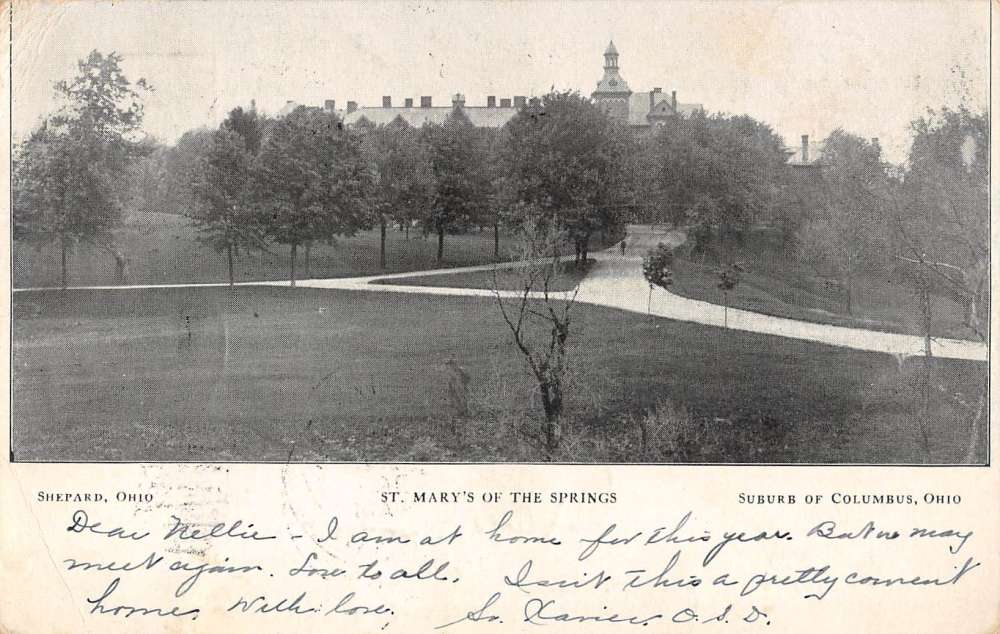 SHEPARD, OHIO ST. MARY'S OF THE SPRINGS SUBURB OF COLUMBUS, OHIO
Dear Nellie - I am at home for this year. But we may
meet again. Love to all. Isn't this a pretty convent
home. With love, Sr. Xavier O.S.D.